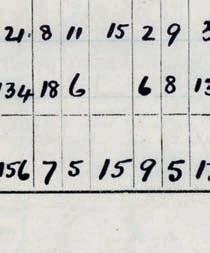 21 8 11 15 2 9 3
134 18 6 6 8 13
156 7 5 15 9 5 17